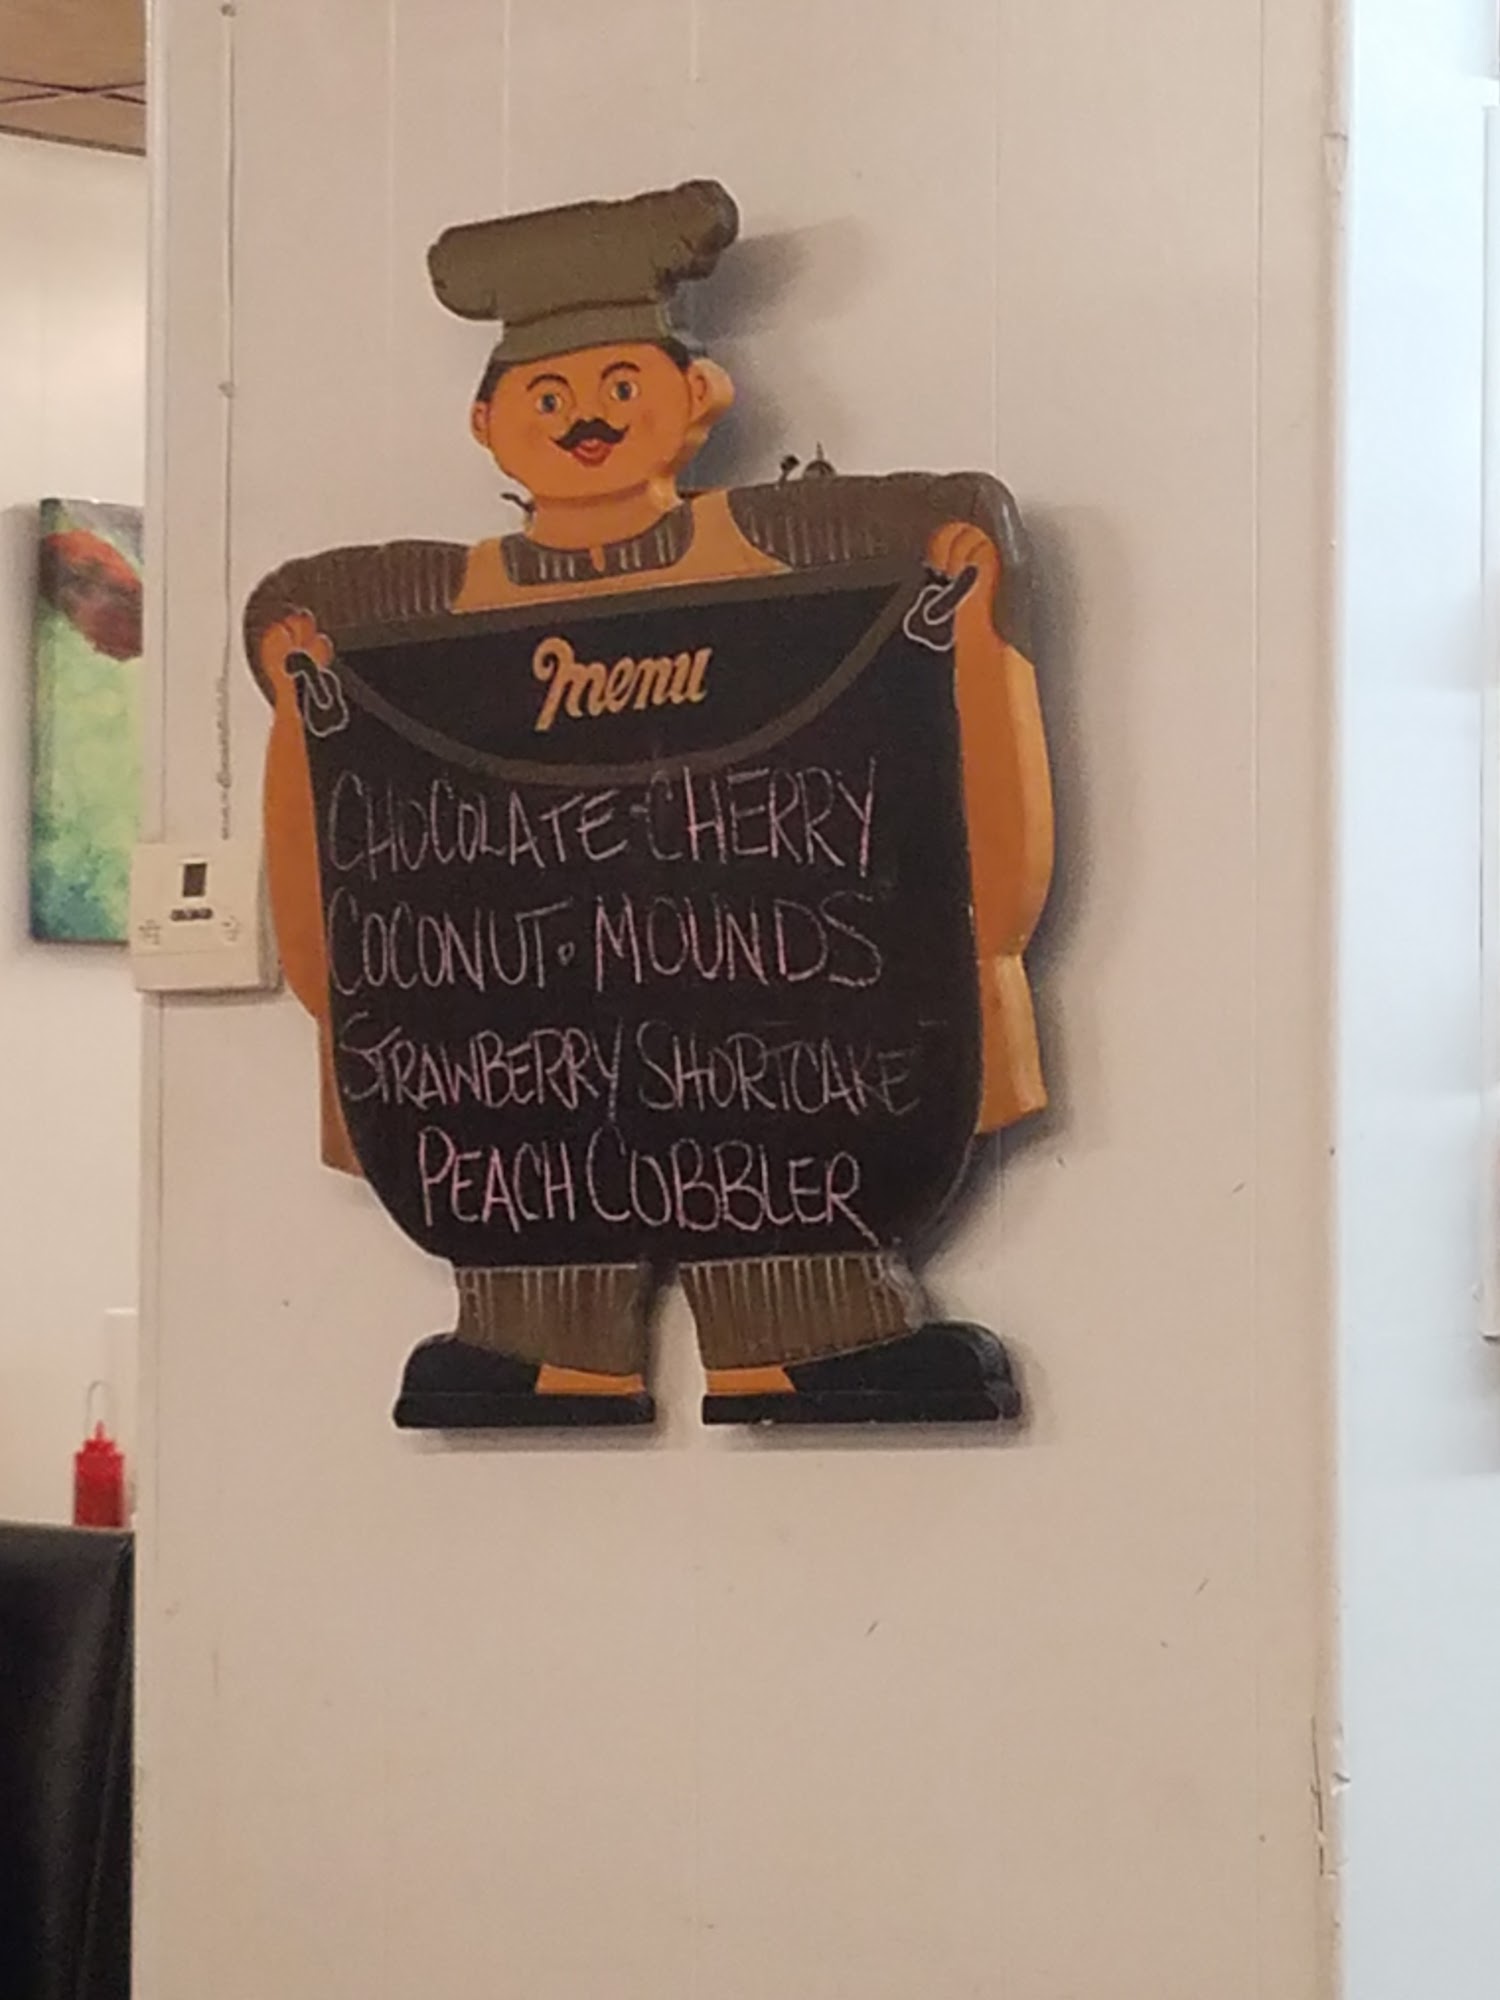 menu
CHOCOLATE-CHERRY
COCONUT. MOUNDS
STRAWBERRY SHORTCAKE
PEACH COBBLER